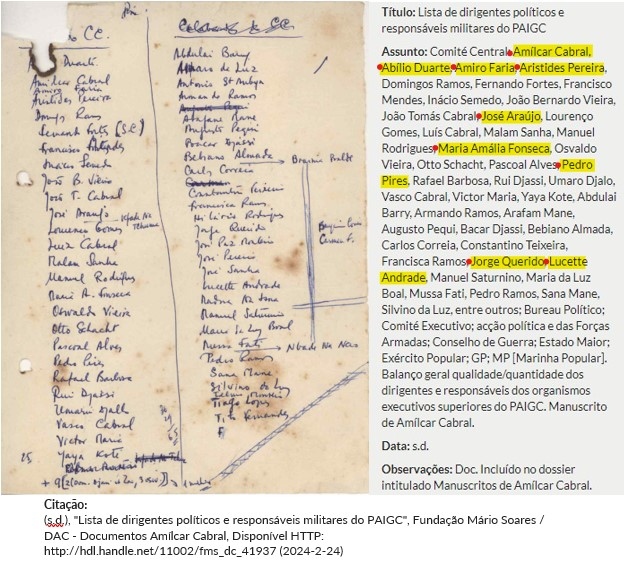 o CE.
Duarte
Amílcar Cabral
Amiro Faria
Aristides Pereira
Domgs Ramos
Fernando Fortes (S.C.)
Francisco Mendes
Inácio Semedo
João B. Vieira
João T. Cabral
José Araujo
Lourenço Gomes
Luiz Cabral
Malam Sanha
Manuel Rodrigues
Maria A. Fonseca
Oswaldo Vieira
Otto Schacht
Pascoal Alves
Pedro Pires
Rafael Barbosa
Rui Djassi
Umaru Djalló
Vasco Cabral
Victor Maria
25 Yaya Koté
Abdulai Barry
Alvaro da Luz
Antonio
Armando Ramos
Arafane Mane
Augusto Pequi
Bacar Djassi
Bebiano Almada
Carlos Correia
Constantino Teixeira
Francisca Ramos
Hilário Rodrigues
Jorge Querido
João Paz
José Pereira
José Sanha
Lucette Andrade
Manuel Saturnino
Maria da Luz Boal
Mussa Fati
Pedro Ramos
Sana Mane
Silvino da Luz
Tiago Lopes
Tito Fernandes
Título: Lista de dirigentes políticos e
responsáveis militares do PAIGC
Assunto: Comité Central Amílcar Cabral,
Abílio Duarte, Amiro Faria, Aristides Pereira,
Domingos Ramos, Fernando Fortes, Francisco
Mendes, Inácio Semedo, João Bernardo Vieira,
João Tomás Cabral, José Araújo, Lourenço
Gomes, Luís Cabral, Malam Sanha, Manuel
Rodrigues, Maria Amália Fonseca, Osvaldo
Vieira, Otto Schacht, Pascoal Alves, Pedro
Pires, Rafael Barbosa, Rui Djassi, Umaro Djalo,
Vasco Cabral, Victor Maria, Yaya Kote, Abdulai
Barry, Armando Ramos, Arafam Mane,
Augusto Pequi, Bacar Djassi, Bebiano Almada,
Carlos Correia, Constantino Teixeira,
Francisca Ramos, Jorge Querido, Lucette
Andrade, Manuel Saturnino, Maria da Luz
Boal, Mussa Fati, Pedro Ramos, Sana Mane,
Silvino da Luz, entre outros; Bureau Político;
Comité Executivo; acção política e das Forças
Armadas; Conselho de Guerra; Estado Maior;
Exército Popular; GP; MP [Marinha Popular].
Balanço geral qualidade/quantidade dos
dirigentes e responsáveis dos organismos
executivos superiores do PAIGC. Manuscrito
de Amílcar Cabral.
Data: s.d.
Observações: Doc. Incluído no dossier
intitulado Manuscritos de Amílcar Cabral.
Citação:
(s.d.), "Lista de dirigentes políticos e responsáveis militares do PAIGC", Fundação Mário Soares /
DAC - Documentos Amílcar Cabral, Disponível HTTP:
http://hdl.handle.net/11002/fms_dc_41937 (2024-2-24)